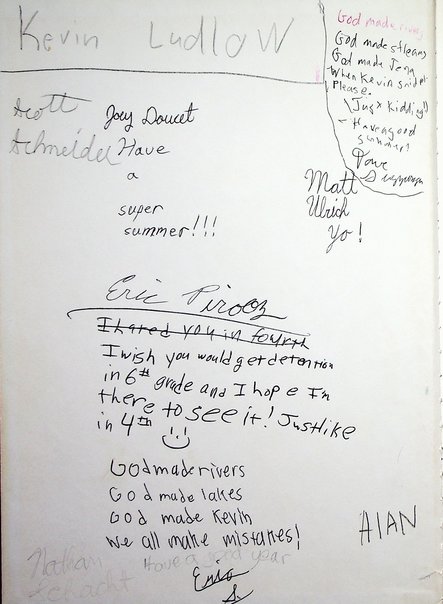 Kevin Ludlow
God made rivers
God made streams
God made Jena
When Kevin said
Please.
Just Kidding!!
- Have a good
summer!
Dave
Scott
Schneider
Joey Doucet
Have
a
super
summer!!!
Matt
Ulrich
Yo!
Eric Pirooz
I hated you in fourth
I wish you would get detention
in 6th grade and I hope I'm
there to see it! Just like
in 4th
God made rivers
God made lakes
God made Kevin
We all make mistakes!
Eric
S.
Have a good year
Nathan
Schacht
AlAN